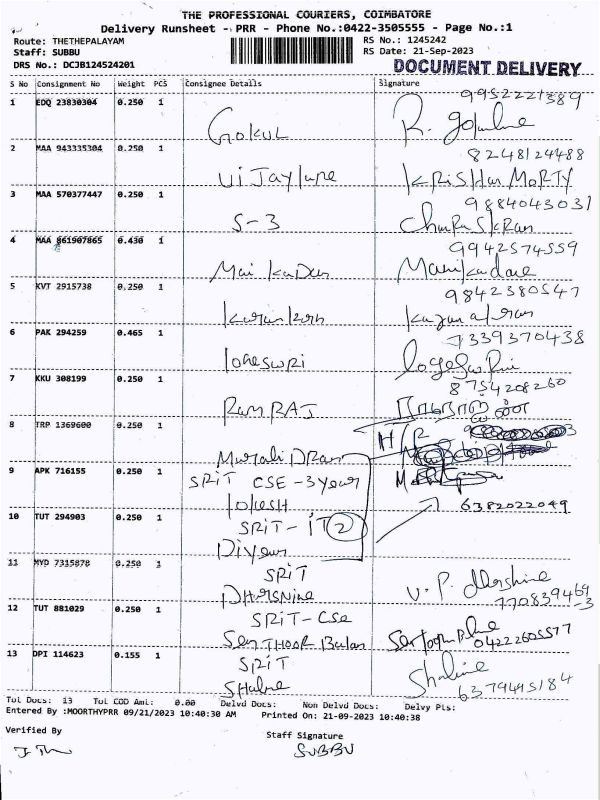 THE PROFESSIONAL COURIERS, COIMBATORE
Delivery Runsheet - PRR - Phone No.:0422-3505555 - Page No.:1
Route: THETHEPALAYAM
RS No.: 1245242
Staff: SUBBU
RS Date: 21-Sep-2023
DRS No.: DCJB124524201
DOCUMENT DELIVERY
S No Consignment No Weight PCS Consignee Details Signature
9952221389
1 EDQ 23830304 0.250 1
GOKUL R.
8248124488
2 MAA 943335304 0.250 1
KRISHAN MORTY
9884043031
3 MAA 570377447 0.250 1
S-3
9942574559
4 MAA 861907865 0.430 1
Manikadane
9842380547
5 KVT 2915738 0.250 1
7339370438
6 PAK 294259 0.465 1
loheswri
8754208260
7 KKU 308199 0.250 1
RAMRAJ
8 TRP 1369600 0.250 1
H/R
Murali DRan
9 APK 716155 0.250 1
SRIT CSE -3 year
lokesH
6382022049
10 TUT 294903 0.250 1
SRIT- IT 2
11 MYD 7315878 0.250 1
SRIT
V. P.
DHARSNINE
770839469
-3
12 TUT 881029 0.250 1
SRIT-CSe
04222605577
13 DPI 114623 0.155 1
SRIT
Shaline
6379495184
Tot Docs: 13 Tot COD Amt: 0.00 Delvd Docs: Non Delvd Docs: Delvy Pts:
Entered By :MOORTHYPRR 09/21/2023 10:40:30 AM Printed On: 21-09-2023 10:40:38
Verified By
Staff Signature
SUBBU